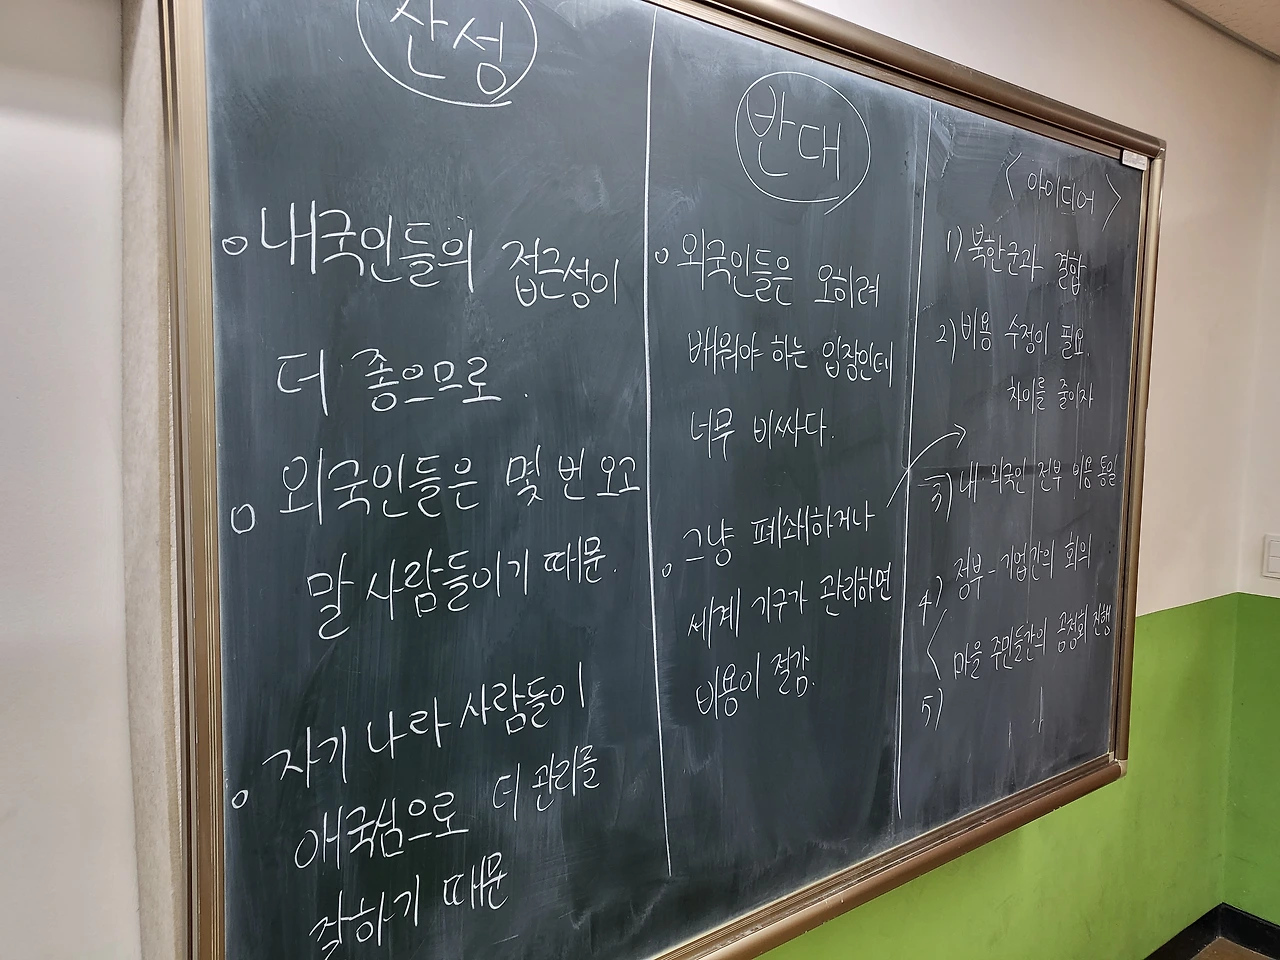 찬성
o 내국인들의 접근성이
더 좋으므로.
o 외국인들은 몇 번 오고
말 사람들이기 때문.
o 자기 나라 사람들이
애국심으로 더 관리를
잘하기 때문
반대
o 외국인들은 오히려
배워야 하는 입장인데
너무 비싸다.
o 그냥 폐쇄하거나
세계 기구가 관리하면
비용이 절감.
< 아이디어 >
1) 북한군과 결합.
2) 비용 수정이 필요.
차이를 줄이자
3) 내·외국인 전부 비용 통일
4) 정부-기업간의 회의
마을 주민들간의 공청회 진행
5)